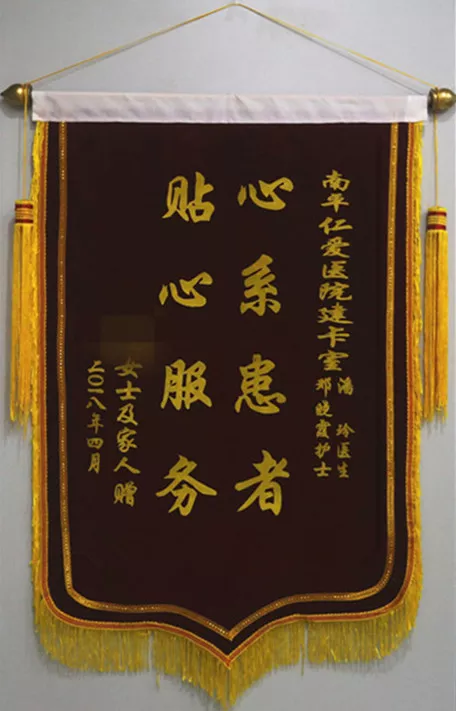 南平仁爱医院建卡室
潘玲医生
邓晓霞护士
心系患者
贴心服务
女士及家人 赠
二〇一八年四月